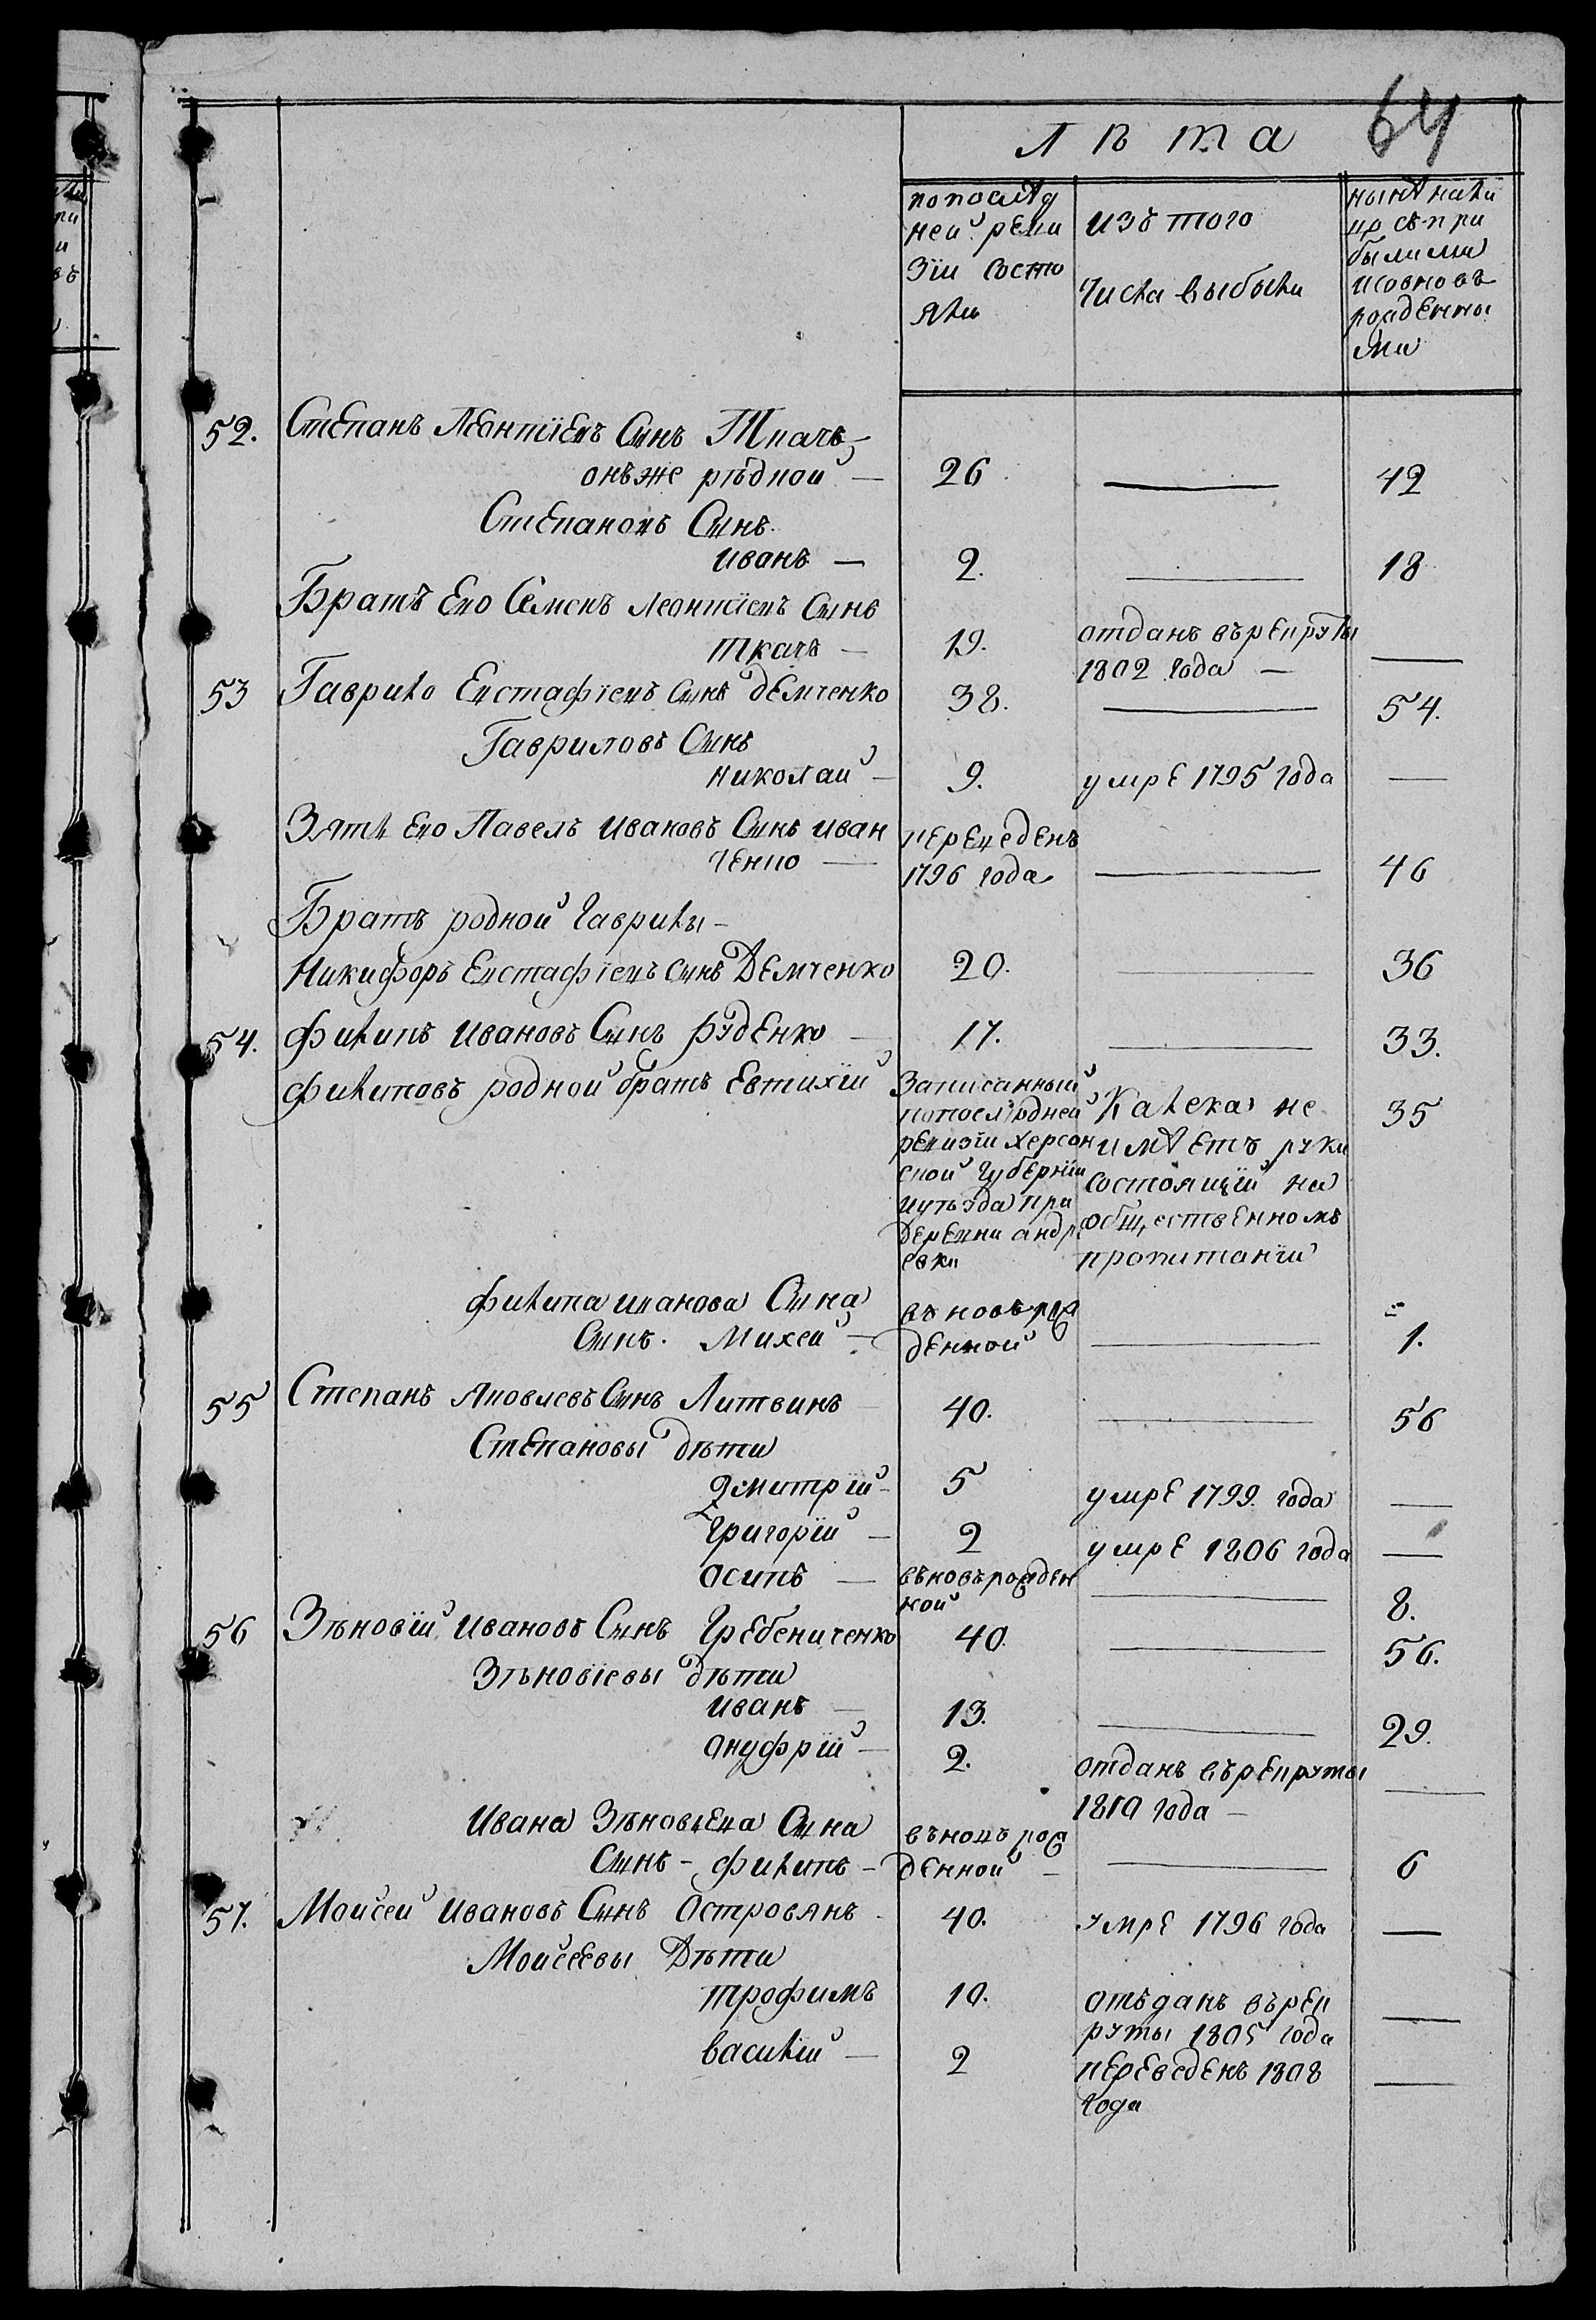 64
Лѣта
попослѣд
ней реви
зіи состо
яли
изъ того
числа выбыли
нынѣ нали
цо съ при
былыми
исовновъ
рожденны
ми
52. Степанъ Леонтіевъ Сынъ Ткачъ
онъже рѣдной — 26 — 42
Степановъ Сынъ
иванъ — 2. — 18
Братъ Его Семенъ Леонтіевъ Сынъ
ткачъ — 19. отданъ върекруты —
1802 года —
53 Гаврило Евстафіевъ сынъ демченко 38. — 54.
Гавриловъ Сынъ
николай — 9. умре 1795 года —
Зять Его Павелъ ивановъ Сынъ иван переведенъ
ченко — 1796 года — 46
Братъ родной гаврилы —
Никифоръ Евстафіевъ сынъ Демченко 20. — 36
54. филипъ ивановъ Сынъ руденко — 17. — 33.
филиповъ родной братъ Евтихій записанный Калека не 35
попослѣдней имѣетъ руки
ревизіи херсон состоящій на
ской губерніи общественномъ
иуѣзда при пропитаніи
деревни андре
евки
филипа иванова Сына въновърож
Сынъ. Михей — денной — 1.
55 Степанъ яковлевъ Сынъ Литвинъ 40. — 56
Степановы дѣти
дмитрій — 5 умре 1799. года —
григорій — 2 умре 1806 года —
осипъ — въновърожден — 8.
ной
56 Зѣновій ивановъ Сынъ Гребениченко 40. — 56.
Зѣновіевы дѣти
иванъ — 13. — 29.
ануфрій — 2. отданъ върекруты —
1810 года —
Ивана Зѣновьева Сына въновъ рож
Сынъ — филипъ — денной — — 6
57. Мойсей ивановъ Сынъ Островянъ 40. умре 1796 года —
Мойсеевы Дѣти
трофимъ 10. отъданъ върек —
руты 1805 года
василій — 2 переведенъ 1808 —
года